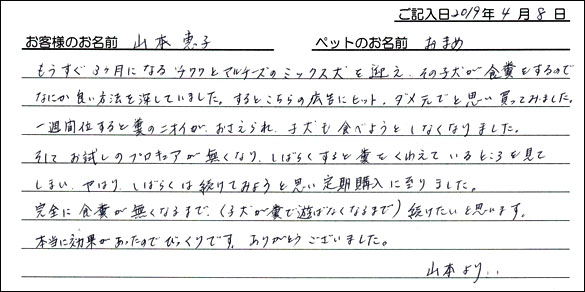 ご記入日2019年4月8日
お客様のお名前 山本恵子 ペットのお名前 おまめ
もうすぐ3ヶ月になるチワワとマルチーズのミックス犬を迎え、その子犬が食糞をするので
なにか良い方法を探していました。するとこちらの広告にヒット、ダメ元でと思い買ってみました。
一週間位すると糞のニオイが、おさえられ、子犬も食べようとしなくなりました。
そしてお試しのプロキュアが無くなり、しばらくすると糞をくわえているところを見て
しまい、やはり、しばらくは続けてみようと思い定期購入に至りました。
完全に食糞が無くなるまで、(子犬が糞で遊ばなくなるまで)続けたいと思います。
本当に効果があったのでびっくりです。ありがとうございました。
山本より...